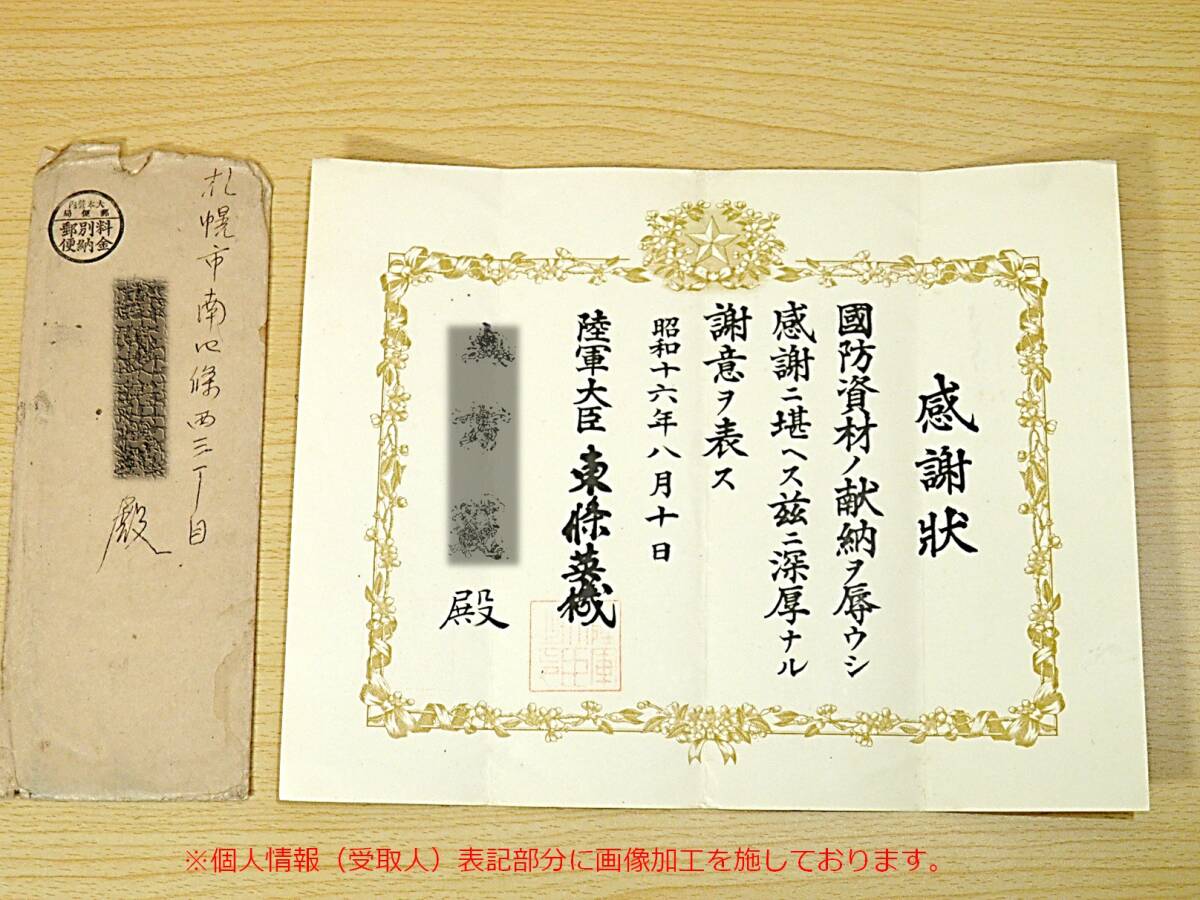 感謝狀
國防資材ノ献納ヲ辱ウシ
感謝ニ堪ヘス茲ニ深厚ナル
謝意ヲ表ス
昭和十六年八月十日
陸軍大臣 東條英機
殿
札幌市南四條西三丁目
殿
大本営内
郵便局
料金
別納
郵便
※個人情報（受取人）表記部分に画像加工を施しております。